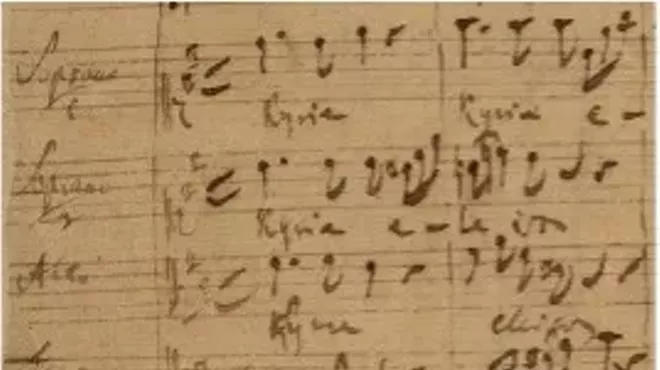 Soprano
1
Kyrie Kyrie e -
Soprano
2
Kyrie e - le ison
Alto
Kyrie eleison